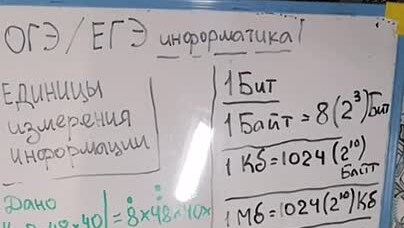 ОГЭ / ЕГЭ информатика!
ЕДИНИЦЫ
измерения
информации
1 Бит
1 Байт = 8 (2³) Бит
1 Кб = 1024 (2¹⁰)
Байт
1 Мб = 1024 (2¹⁰) Кб
Дано
8·48·40 = 8×48×40×